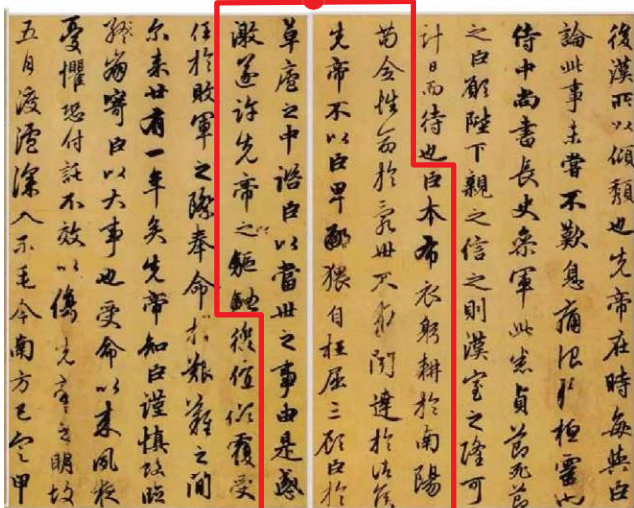 後漢所以傾頹也先帝在時每與臣
論此事未嘗不歎息痛恨於桓靈也
侍中尚書長史參軍此悉貞節死節
之臣願陛下親之信之則漢室之隆可
計日而待也臣本布衣躬耕於南陽
苟全性命於亂世不求聞達於諸侯
先帝不以臣卑鄙猥自枉屈三顧臣於
草廬之中諮臣以當世之事由是感
激遂許先帝之驅馳後值傾覆受
任於敗軍之際奉命於艱難之間
尔来廿有一年矣先帝知臣謹慎故臨
崩寄臣以大事也受命以来夙夜
憂懼恐付託不效以傷先帝之明故
五月渡瀘深入不毛今南方已定甲